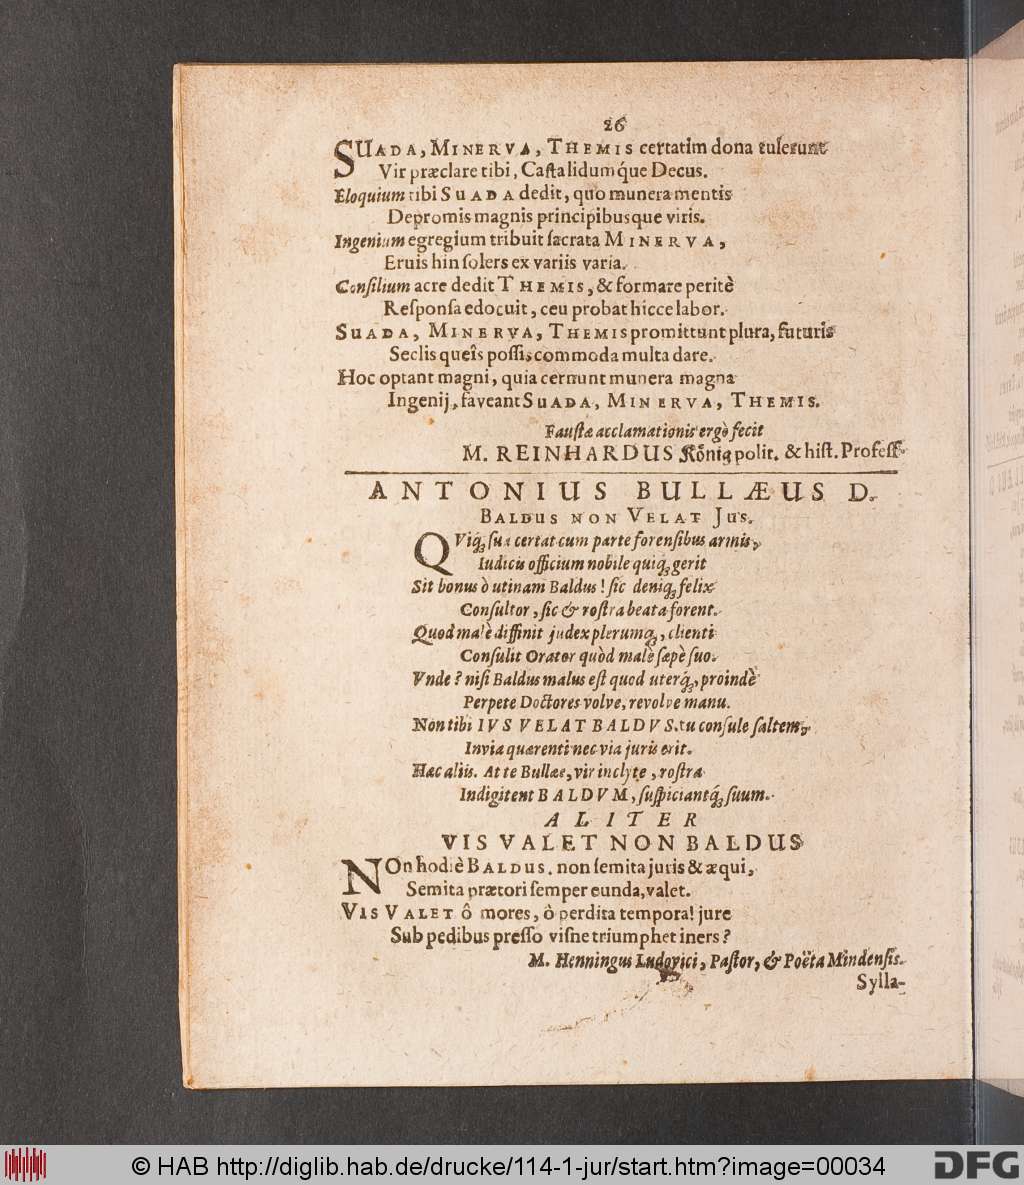 26
SUADA, MINERVA, THEMIS certatim dona tulerunt
Vir præclare tibi, Castalidumq́ue Decus.
Eloquium tibi SUADA dedit, quo munera mentis
Depromis magnis principibusque viris.
Ingenium egregium tribuit sacrata MINERVA,
Eruis hin solers ex variis varia.
Consilium acre dedit THEMIS, & formare peritè
Responsa edocuit, ceu probat hicce labor.
SUADA, MINERVA, THEMIS promittunt plura, futuris
Seclis queîs possis commoda multa dare.
Hoc optant magni, quia cernunt munera magna
Ingenij, faveant SUADA, MINERVA, THEMIS.
Faustæ acclamationis ergò fecit
M. REINHARDUS König polit. & hist. Profess.
ANTONIUS BULLÆUS D.
BALDUS NON VELAT JUS.
QViq; sua certat cum parte forensibus armis,
Iudicis officium nobile quiq; gerit
Sit bonus ò utinam Baldus! sic deniq; felix
Consultor, sic & rostra beata forent.
Quod malè diffinit judex plerumq;, clienti
Consulit Orator quòd malè sæpè suo.
Vnde? nisi Baldus malus est quod uterq́;, proindè
Perpete Doctores volve, revolve manu.
Non tibi IVS VELAT BALDVS. tu consule saltem,
Invia quærenti nec via juris erit.
Hæc aliis. At te Bullæe, vir inclyte, rostra
Indigitent BALDVM, suspiciantq́; suum.
ALITER
VIS VALET NON BALDUS
NOn hodiè BALDUS. non semita juris & æqui,
Semita prætori semper eunda, valet.
VIS VALET ô mores, ò perdita tempora! jure
Sub pedibus presso visne triumphet iners?
M. Henningus Ludovici, Pastor, & Poëta Mindensis.
Sylla-
© HAB http://diglib.hab.de/drucke/114-1-jur/start.htm?image=00034
DFG